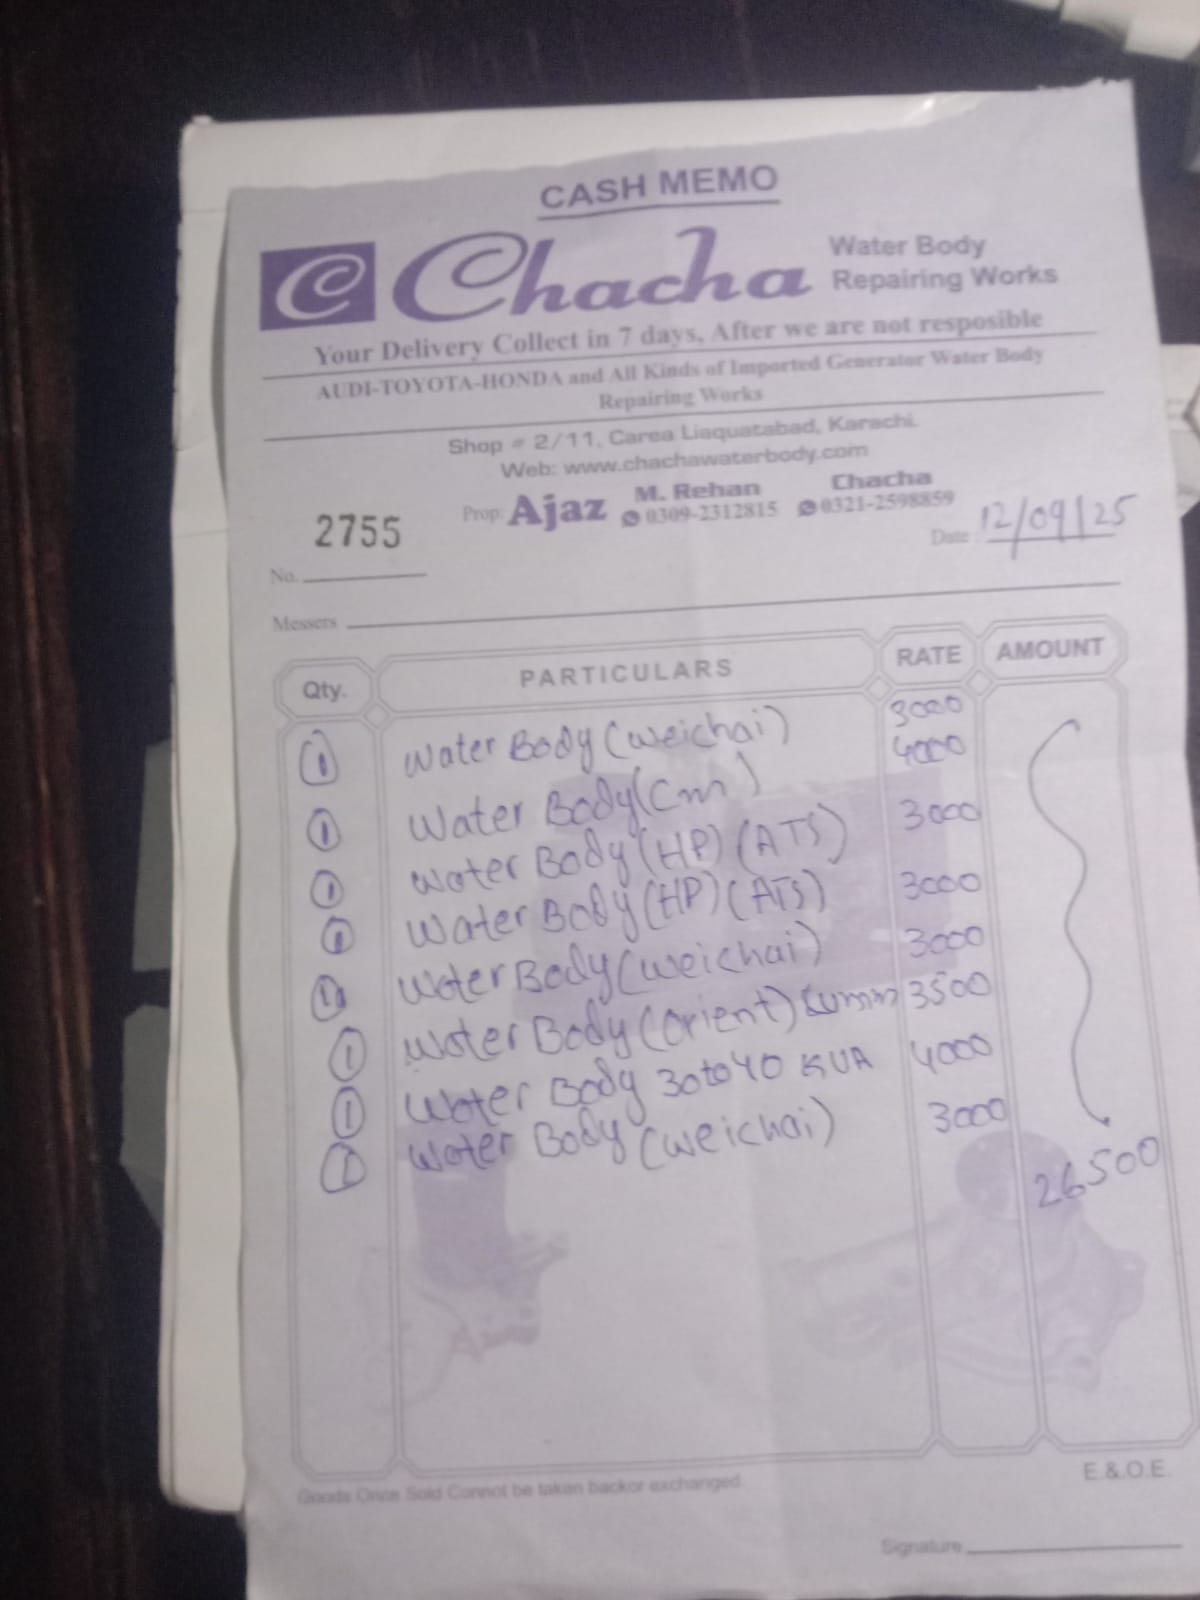 CASH MEMO
C Chacha Water Body
Repairing Works
Your Delivery Collect in 7 days, After we are not resposible
AUDI-TOYOTA-HONDA and All Kinds of Imported Generator Water Body
Repairing Works
Shop # 2/11, Carea Liaquatabad, Karachi.
Web: www.chachawaterbody.com
Prop: Ajaz M. Rehan 0309-2312815 Chacha 0321-2598859
No. 2755
Date: 12/09/25
Messers
Qty. PARTICULARS RATE AMOUNT
1 Water Body (weichai) 3000
1 Water Body (Cm) 4000
1 Water Body (HP) (ATS) 3000
1 Water Body (HP) (ATS) 3000
1 Water Body (weichai) 3000
1 Water Body (Orient) 3500
1 Water Body 30 to 40 KVA 4000
1 Water Body (weichai) 3000
26500
Goods Once Sold Connot be taken backor exchanged.
E.&.O.E.
Signature